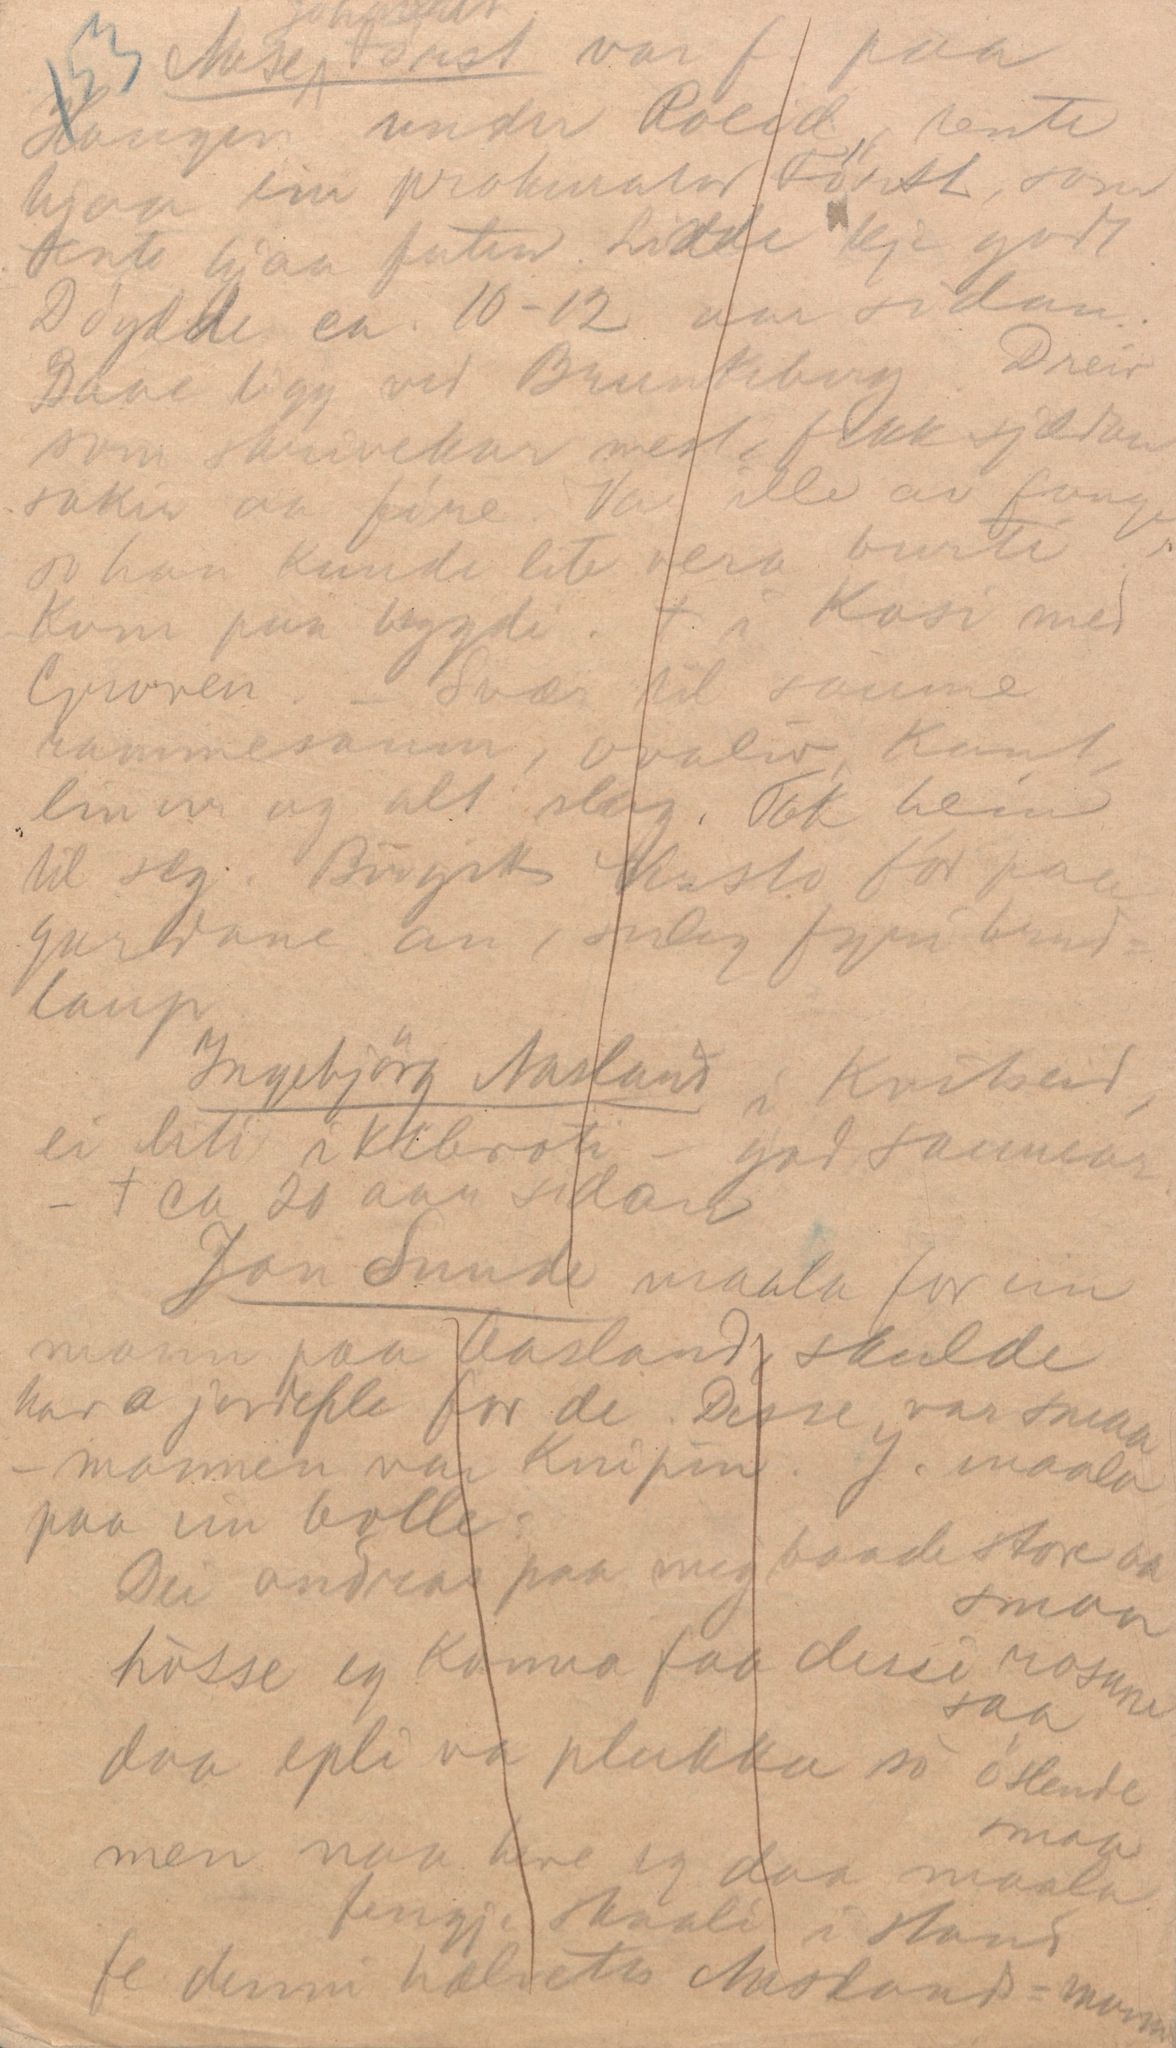 153
Johannes
Aase Först var f. paa
Haugen under Roeid, tente
hjaa ein prokurator Först, som
tente hjaa futen. Lidde kje godt
Döydde ca. 10-12 aar sidan.
Baae ligg ved Brunkeberg. Dreiv
som skrivekar mest, fekk sjeldan
saker aa före. Va ille av
so han kunde lite vera burti
Kom paa bygdi. † i Kasi med
Guroen. – Svær til saume
rammesaum, ovaler, Kant,
linur og alt slag. Tok heim
til seg. Birgit for paa
gardane an, selleg fyri brud=
laup
Ingebjörg Aasland i Kvitseid,
ei liti – god saumar
– † ca 20 aar sidan
Jon Sunde maala for ein
mann paa Aasland, skulde
hava jordeple for de. Desse var smaa
– mannen var knipin. J. maala
paa ein bolle:
Dei undrar paa meg baade store aa
smaa
hösse eg kunna faa desse rosune
saa
daa epli va plukka so öslende
smaa
men naa bere eg daa maala
fengje skaali i stand
fe denni helvetes Aaslands=mann